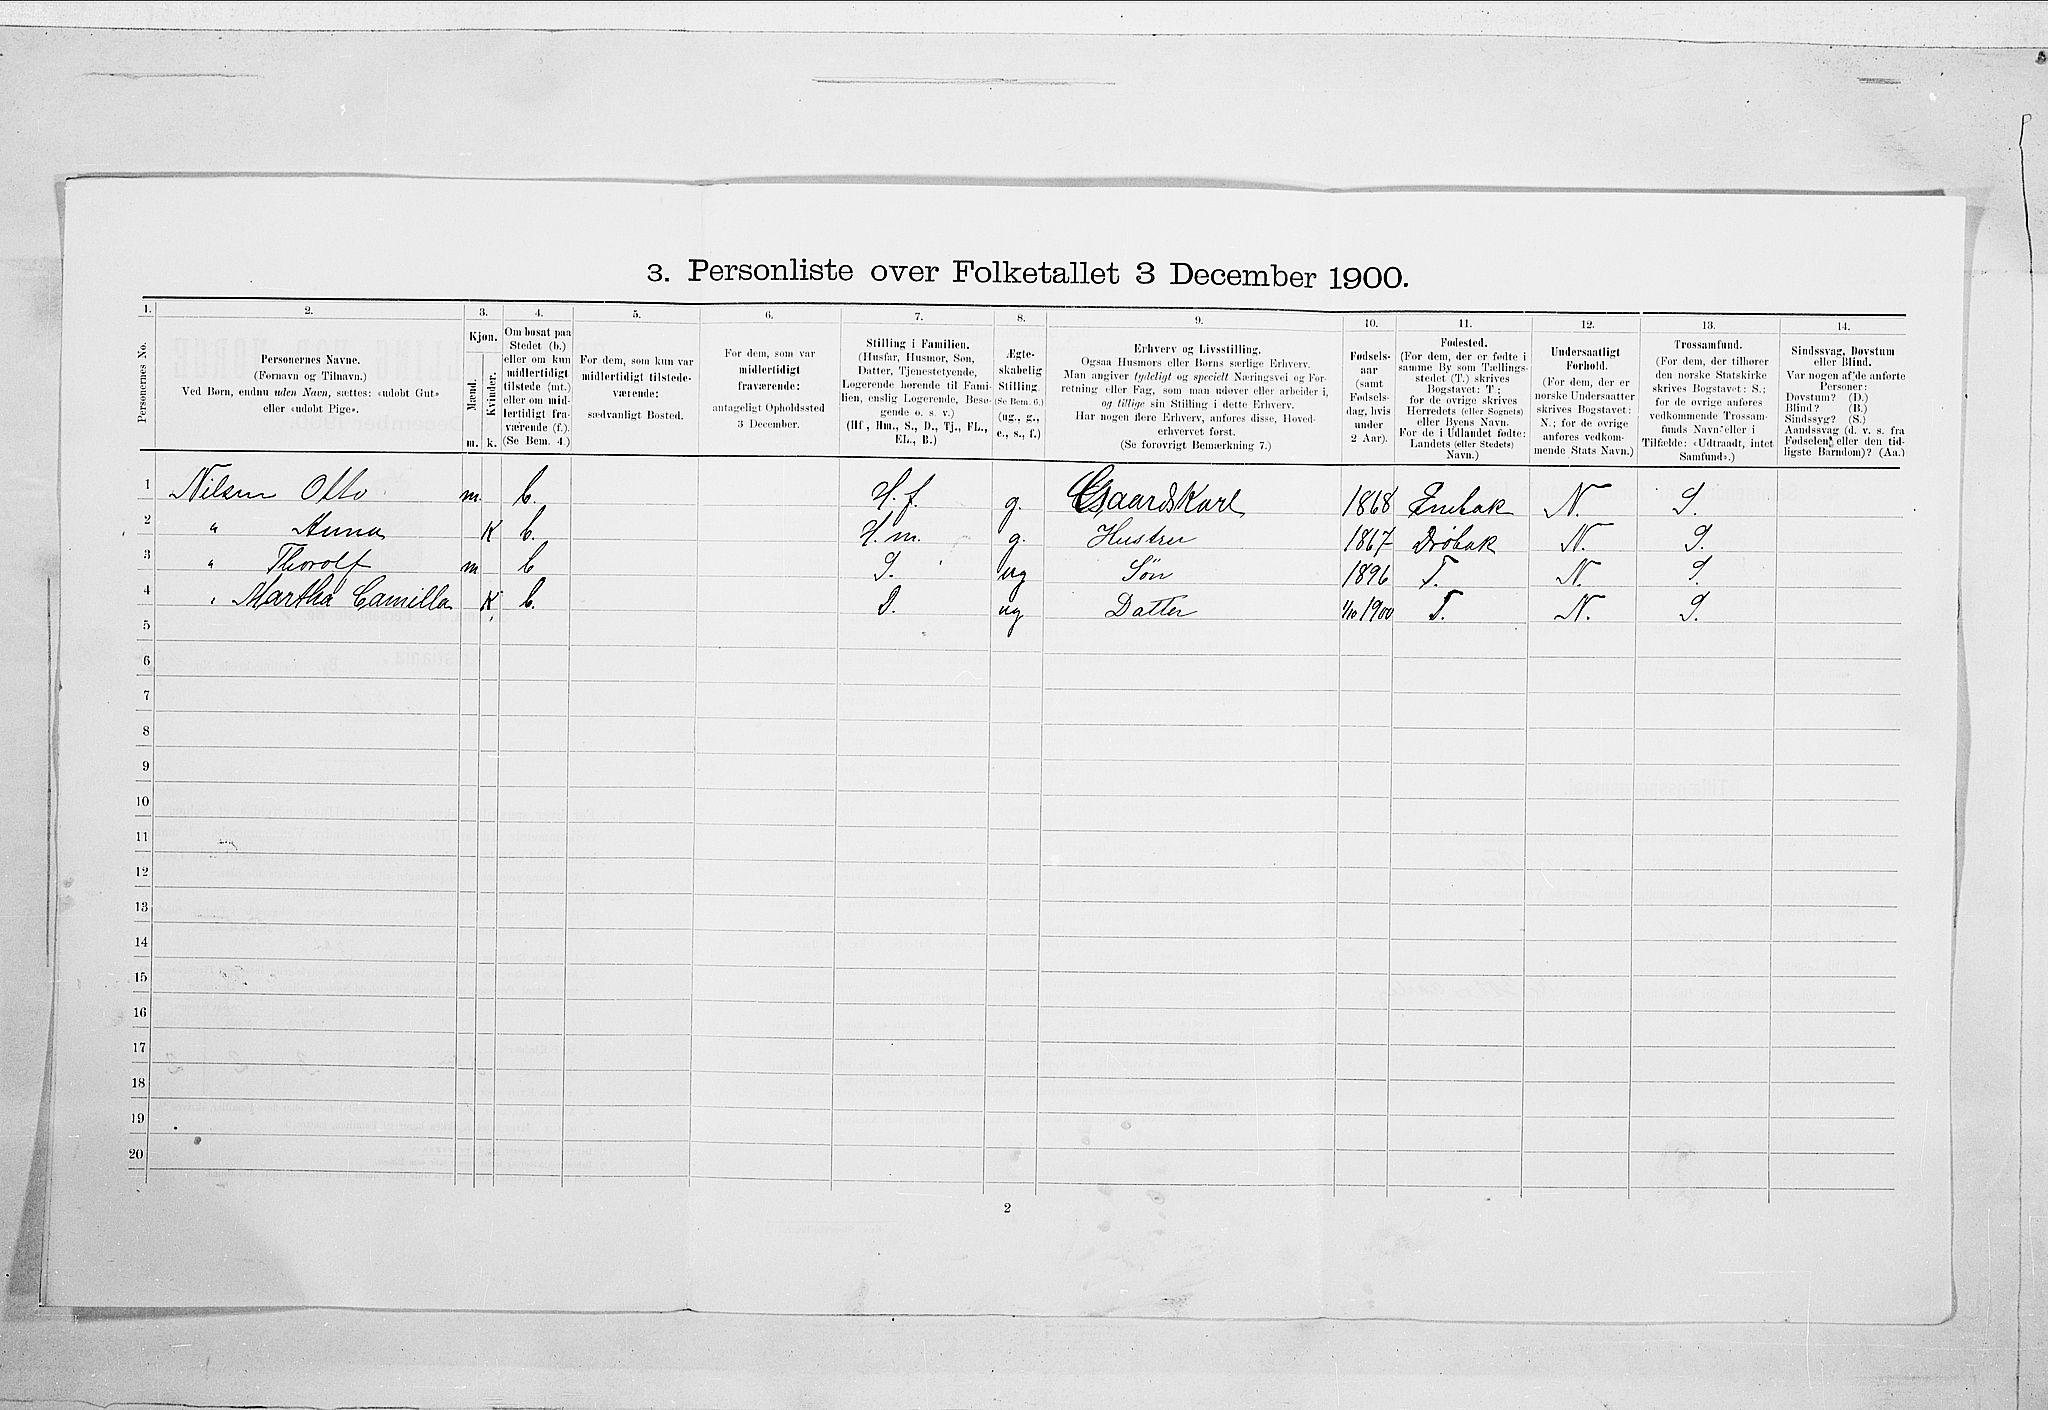 3. Personliste over Folketallet 3 December 1900.
1. 2. 3. 4. 5. 6. 7. 8. 9. 10. 11. 12. 13. 14.
Personernes No.
Personernes Navne.
(Fornavn og Tilnavn.)
Ved Børn, endnu uden Navn, sættes: «udøbt Gut»
eller «udøbt Pige».
Kjøn.
Mænd.
m.
Kvinder.
k.
Om bosat paa
Stedet (b.)
eller om kun
midlertidigt
tilstede (mt.)
eller om mid-
lertidigt fra-
værende (f.).
(Se Bem. 4.)
For dem, som kun var
midlertidigt tilstede-
værende:
sædvanligt Bosted.
For dem, som var
midlertidigt
fraværende:
antageligt Opholdssted
3 December.
Stilling i Familien.
(Husfar, Husmor, Søn,
Datter, Tjenestetyende,
Logerende hørende til Fami-
lien, enslig Logerende, Besø-
gende o. s. v.)
(Hf, Hm., S., D., Tj., FL.,
EL., B.)
Ægte-
skabelig
Stilling.
(Se Bem. 6.)
(ug., g.,
e., s., f.)
Erhverv og Livsstilling.
Ogsaa Husmors eller Børns særlige Erhverv.
Man angiver tydeligt og specielt Næringsvei og For-
retning eller Fag, som man udøver eller arbeider i,
og tillige sin Stilling i dette Erhverv.
Har nogen flere Erhverv, anføres disse, Hoved-
erhvervet først.
(Se forøvrigt Bemærkning 7.)
Fødsels-
aar
(samt
Fødsels-
dag, hvis
under
2 Aar).
Fødested.
(For dem, der er fødte i
samme By som Tællings-
stedet (T.) skrives
Bogstavet: T;
for de øvrige skrives
Herredets (eller Sognets)
eller Byens Navn.
For de i Udlandet fødte:
Landets (eller Stedets)
Navn.)
Undersaatligt
Forhold.
(For dem, der er
norske Undersaatter
skrives Bogstavet:
N.; for de øvrige
anføres vedkom-
mende Stats Navn.)
Trossamfund.
(For dem, der tilhører
den norske Statskirke
skrives Bogstavet: S.;
for de øvrige anføres
vedkommende Trossam-
funds Navn eller i
Tilfælde: «Udtraadt, intet
Samfund».)
Sindssvag, Døvstum
eller Blind.
Var nogen af de anførte
Personer:
Døvstum? (D.)
Blind? (B.)
Sindssyg? (S.)
Aandssvag (d. v. s. fra
Fødselen eller den tid-
ligste Barndom)? (Aa.)
1 Nilsen Otto m. b. H. f. g. GaardsKarl 1868 Enebak N. S.
2 " Anna K b. H. m. g. Hustru 1867 Drøbak N. S.
3 " Thorolf m b S. ug Søn 1896 T. N. S.
4 " Martha Camilla K b. D. ug Datter 1/10 1900 T. N. S.
5
6
7
8
9
10
11
12
13
14
15
16
17
18
19
20
2